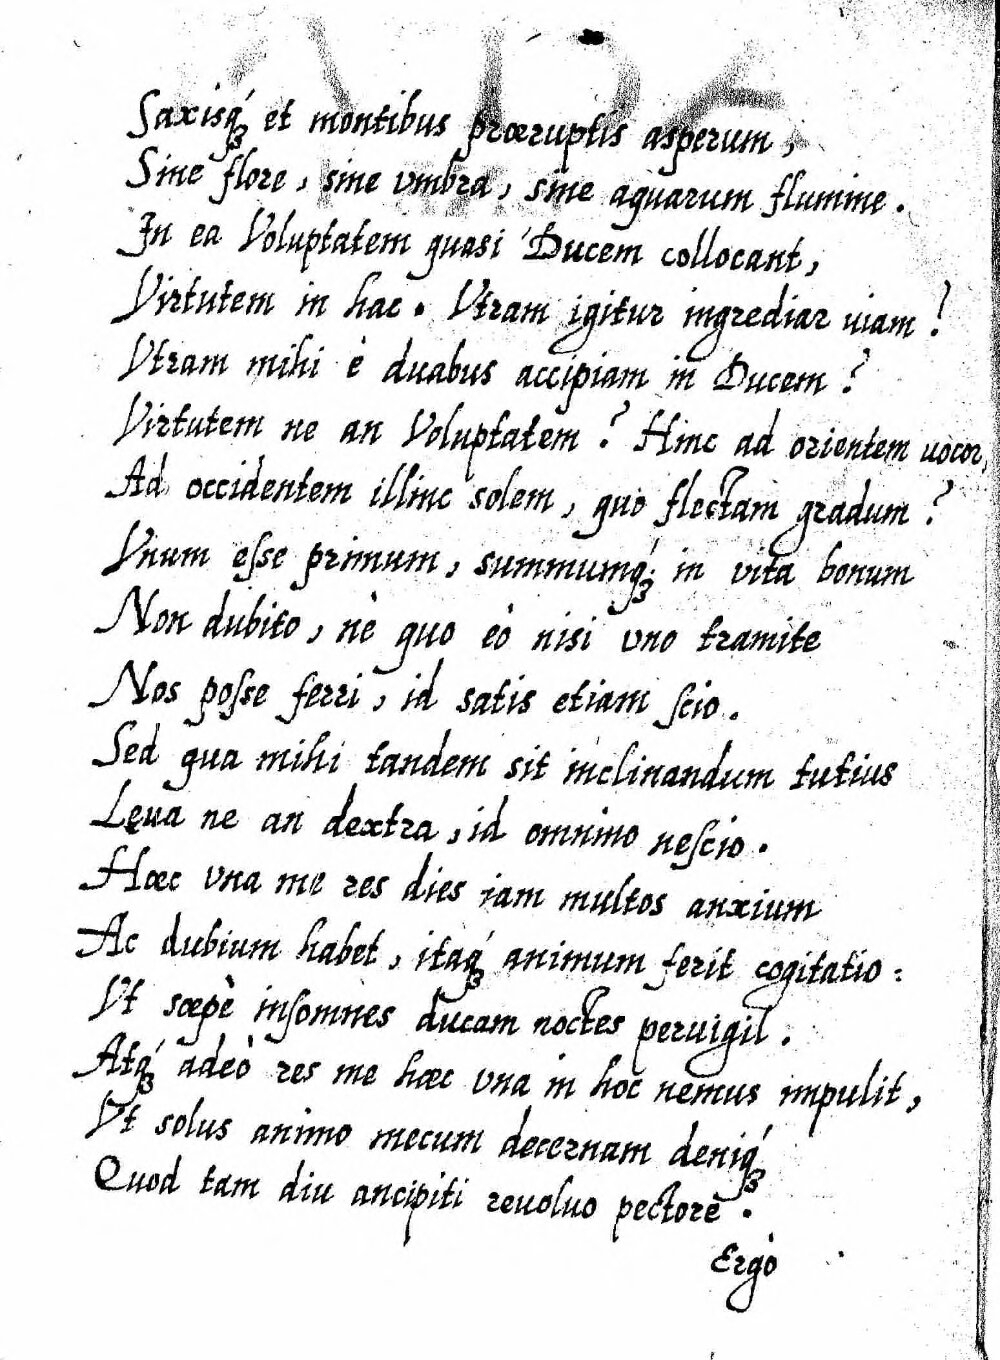 Saxisq́ꝫ et montibus præruptis asperum,
Sine flore, sine vmbra, sine aquarum flumine.
In ea Voluptatem quasi Ducem collocant,
Virtutem in hac. Vtram igitur ingrediar uiam?
Vtram mihi è duabus accipiam in Ducem?
Virtutem ne an Voluptatem? Hinc ad orientem uocor,
Ad occidentem illinc solem, quò flectam gradum?
Vnum eſse primum, summumq́ꝫ in vita bonum
Non dubito, nè quo eò nisi vno tramite
Nos poſse ferri, id satis etiam ſcio.
Sed qua mihi tandem sit inclinandum tutius
Lęua ne an dextra, id omnino neſcio.
Hæc vna me res dies iam multos anxium
Ac dubium habet, itaq́ꝫ animum ferit cogitatio:
Vt sæpè inſomnes ducam noctes peruigil.
Atq́ꝫ adeò res me hæc vna in hoc nemus impulit,
Vt solus animo mecum decernam deniq́ꝫ
Quod tam diu ancipiti reuoluo pectore.
Ergò